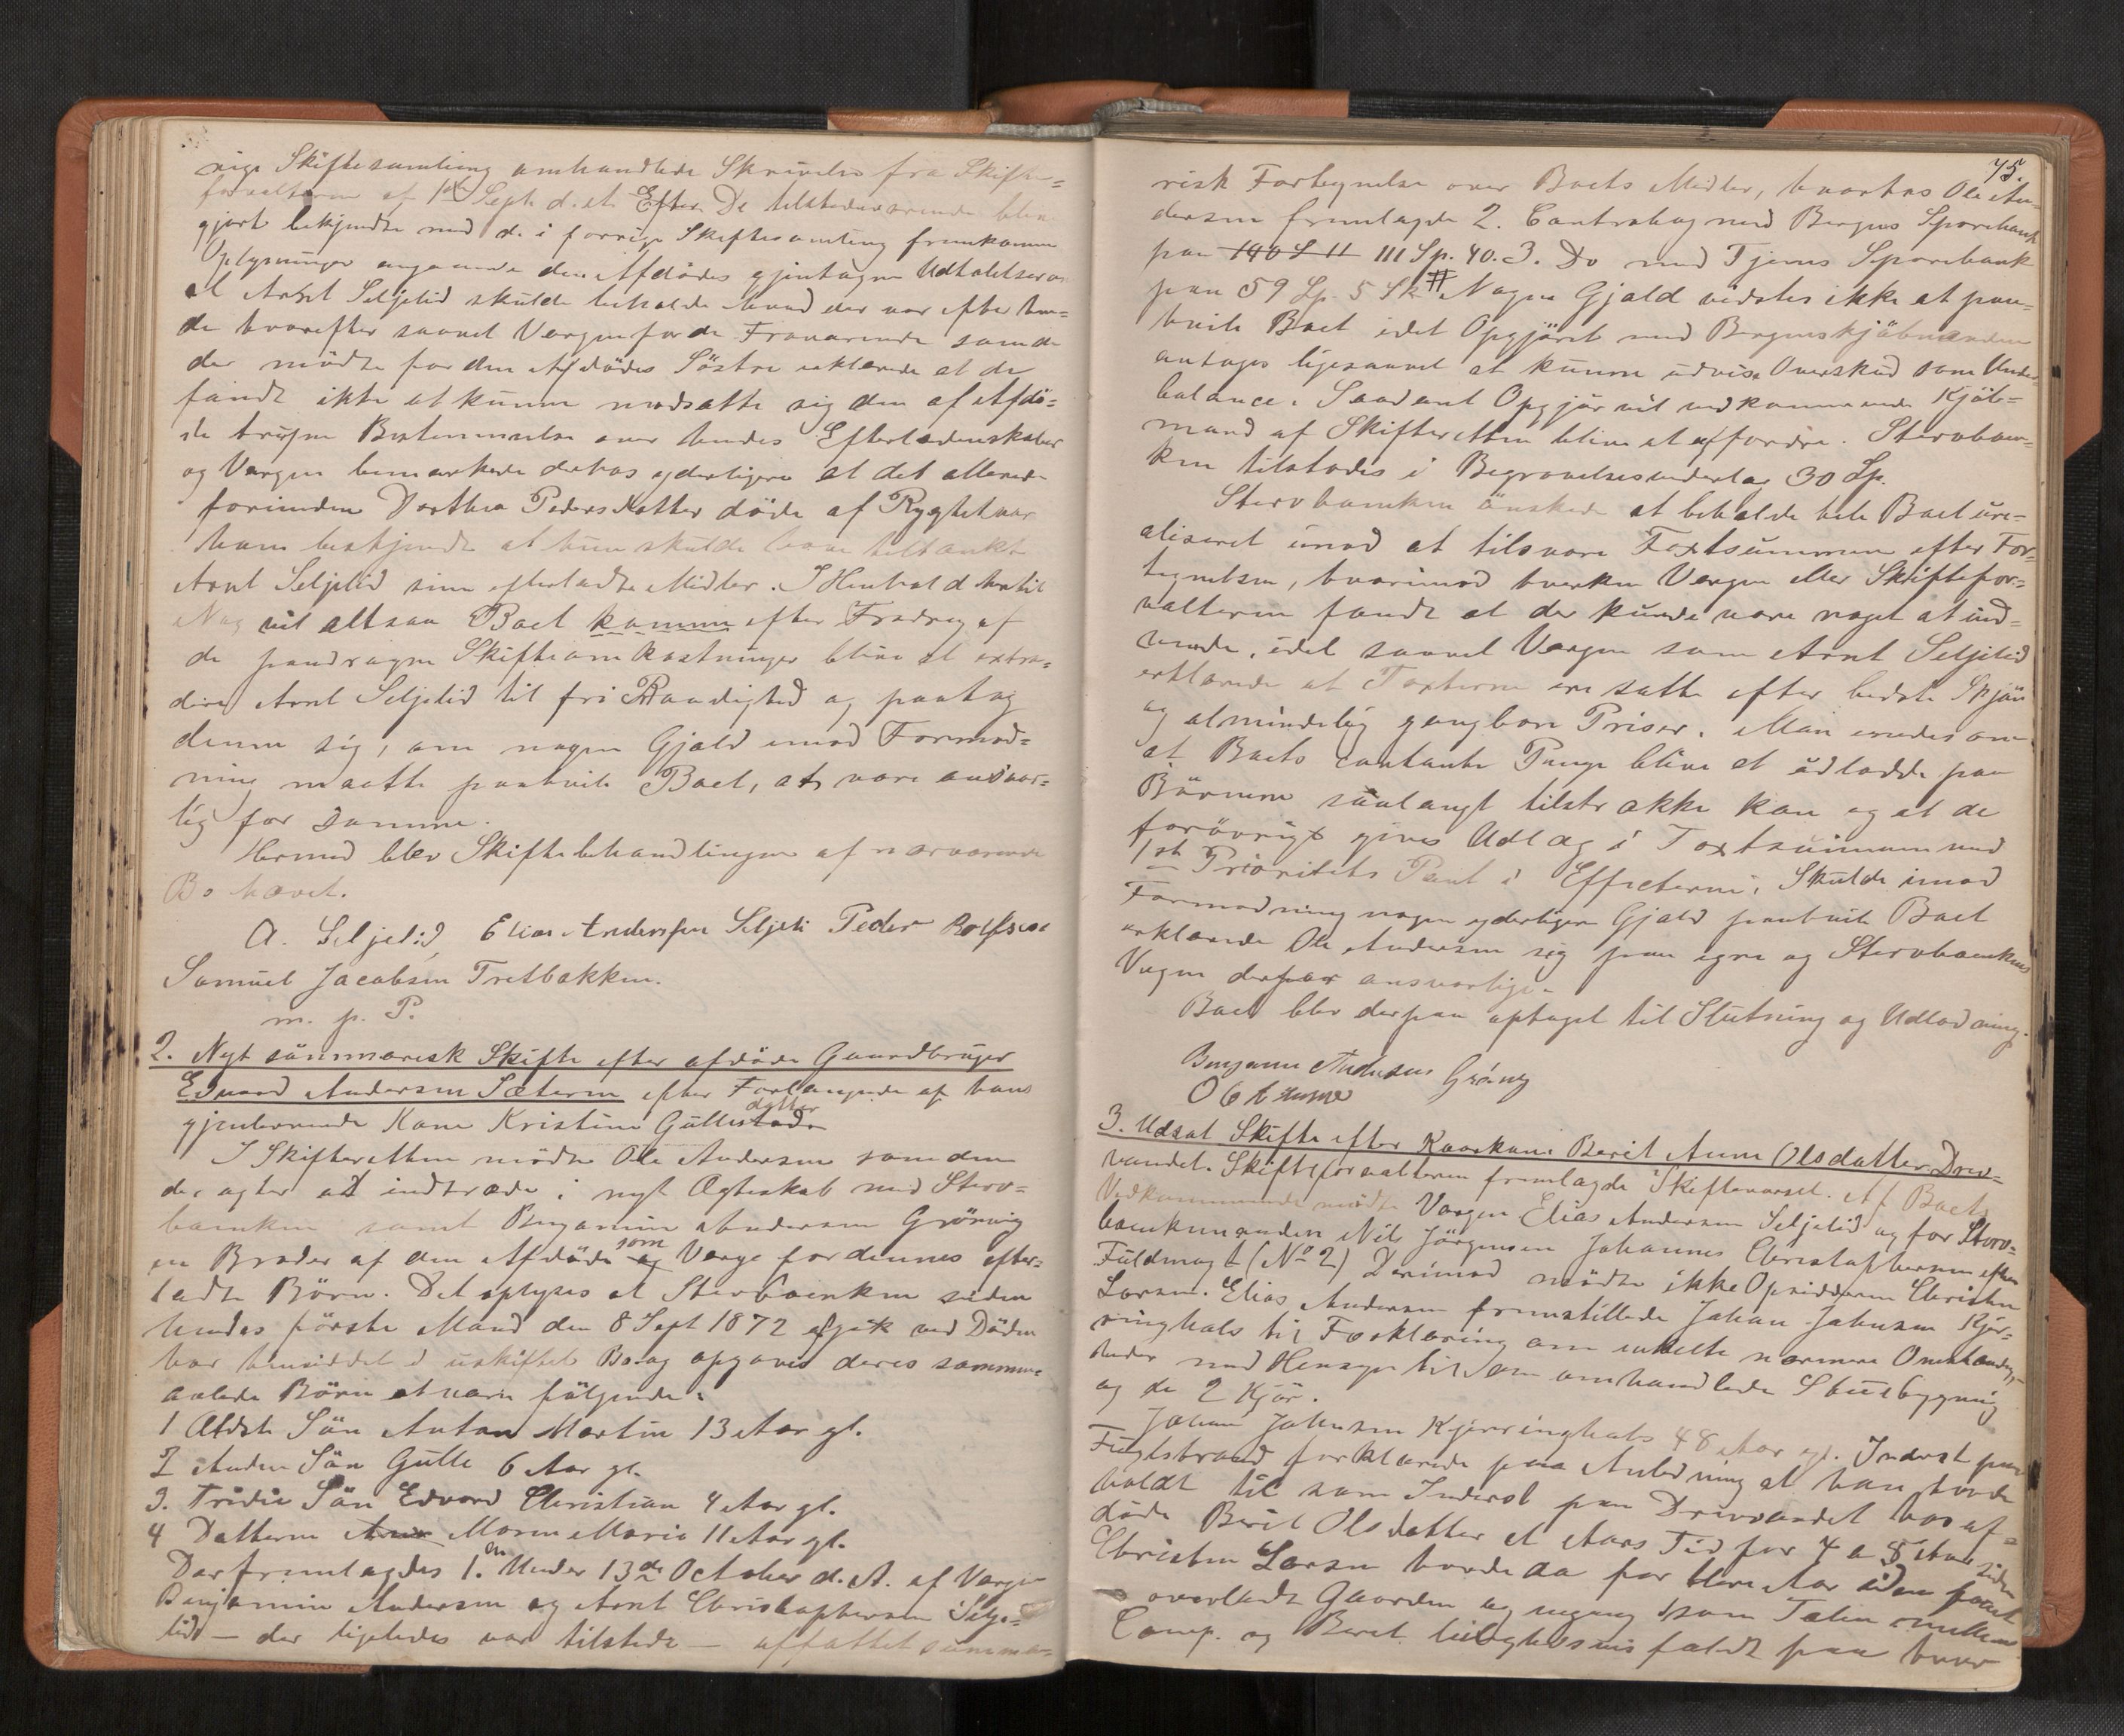 rige Skiftesamling omhandlede Skrivelse fra Skifte=
forvalteren af 1ste Sept. d. A. Efter De tilstedeværende bleve
gjort bekjendte med de i forrige Skiftesamling fremkomne
Oplysninger angaaende den Afdödes gjentagne Udtalelser om
at Arnt Seljelid skulde beholde hvad der var efter hen=
de hvorefter saavel Vergen for de Fraværende som de
der mödte for den Afdödes Söstre erklærede at de
fandt ikke at kunne modsætte sig den af Afdö=
de trufne Bestemmelse over hendes Efterladenskaber
og Vergen bemærkede derhos yderligere at det allerede
forinden Dorthea Pedersdatter döde af Rygtet var
ham bekjendt at hun skulde have tiltænkt
Arnt Seljelid sine efterladte Midler. I Henhold hertil
vil altsaa Boet komme efter Fradrag af
de paadragne Skifteomkostninger blive at extra=
dere Arnt Seljelid til fri Raadighed og paatog
denne sig, om nogen Gjæld imod Formod=
ning maatte paahvile Boet, at være ansvar=
lig for samme.
Hermed blev Skiftebehandlingen af nærværende
Bo hævet.
A. Seljelid, Elias Andersen Seljeli Peder Rolfsen
Samuel Jacobsen Tretbakken.
m. p. P.
2. Nyt summarisk Skifte efter afdöde Gaardbruger
Edvard Andersen Sæteren efter Forlangende af hans
gjenlevende Kone Kristine Gullestadr datter
I Skifteretten mödte Ole Andersen som den
der agter at indtræde i nyt Ægteskab med Sterv=
boenken samt Benjamin Andersen Gröning
en Broder af den Afdöde og som Verge for dennes efter=
ladte Börn. Det oplyses at Stervboenken siden
hendes förste Mand den 8 Sept 1872 afgik ved Döden
har hensiddet i uskiftet Bo og opgaves deres sammen
avlede Börn at være fölgende:
1 Ældste Sön Anton Martin 13 Aar gl.
2 Anden Sön Gulle 6 Aar gl.
3. Tridie Sön Edvard Christian 4 Aar gl.
4 Datteren Ane Maren Maria 11 Aar gl.
Der fremlagdes 1. En under 13de October d. A. af Vergen
Benjamin Andersen og Arnt Christophersen Selje=
lid - der ligeledes var tilstede - affattet summa=
75.
risk Fortegnelse over Boets Midler, hvorhos Ole An=
dersen fremlagde 2. Contrabog med Bergens Sparebank
paa 140 S 11 111 Sp. 40. 3. Do med Tjems Sparebank
paa 59 Sp. 5 Sk # Nogen Gjæld vidstes ikke at paa=
hvile Boet idet Opgjöret med Bergenskjöbmanden
antages ligesaavel at kunne udvise Overskud som Under
balance. Saadant Opgjör vil vedkommende Kjöb=
mand af Skifteretten blive at affordre. Stervboen=
ken tilstodes i Begravelsesunderlag 30 Sp.
Stervboenken önskede at beholde hele Boet ure=
aliseret imod at tilsvare Taxtsummen efter For=
tegnelsen, hvorimod hverken Vergen eller Skiftefor=
valteren fandt at der kunde være noget at ind=
vende, idet saavel Vergen som Arnt Seljelid
erklærede at Taxterne ere satte efter bedste Skjön
og almindelig gangbare Priser. Man enedes om
at Boets contante Penge blive at udlodde paa
Börnene saalangt tilstrække kan og at de
forövrigt gives Udlæg i Taxtsummen med
1ste Prioritets Pant i Effecterne. Skulde imod
Formodning nogen yderligere Gjæld paahvile Boet
erklærede Ole Andersen sig paa egne og Stervboenkens
Vegne derfor ansvarlige.
Boet blev derpaa optaget til Slutning og Udlodning.
Benjamin Andersen Gröning
3. Udsat Skifte efter Kaarkone Berit Anne Olsdatter Driv=
vandet. Skifteforvalteren fremlagde Skiftevarsel. Af Boets
Vedkommende mödte Vergen Elias Andersen Seljelid og for Sterv=
boenkemanden Nils Jörgensen Johannes Christophersen efter
Fuldmagt (No 2) Derimod mödte ikke Opsidderen Christen
Larsen. Elias Andersen fremstillede Johan Johnsen Kjer=
ringhals til Forklaring om enkelte nærmere Omstændig=
heder med Hensyn til den omhandlede Stuebygning
og de 2 Kjör.
Johan Johnsen Kjerringhals 48 Aar gl. Inderst paa
Fuglstrand forklarede paa Anledning at han havde
holdt til som Inderst paa Drivvandet hos af=
döde Berit Olsdatter et Aars Tid for 7 a 8 Aar siden
Christen Larsen havde da for flere Aar siden faaet
overladt Gaarden og engang som Talen mellem
Comp. og Berit leilighedsvis faldt paa hvor